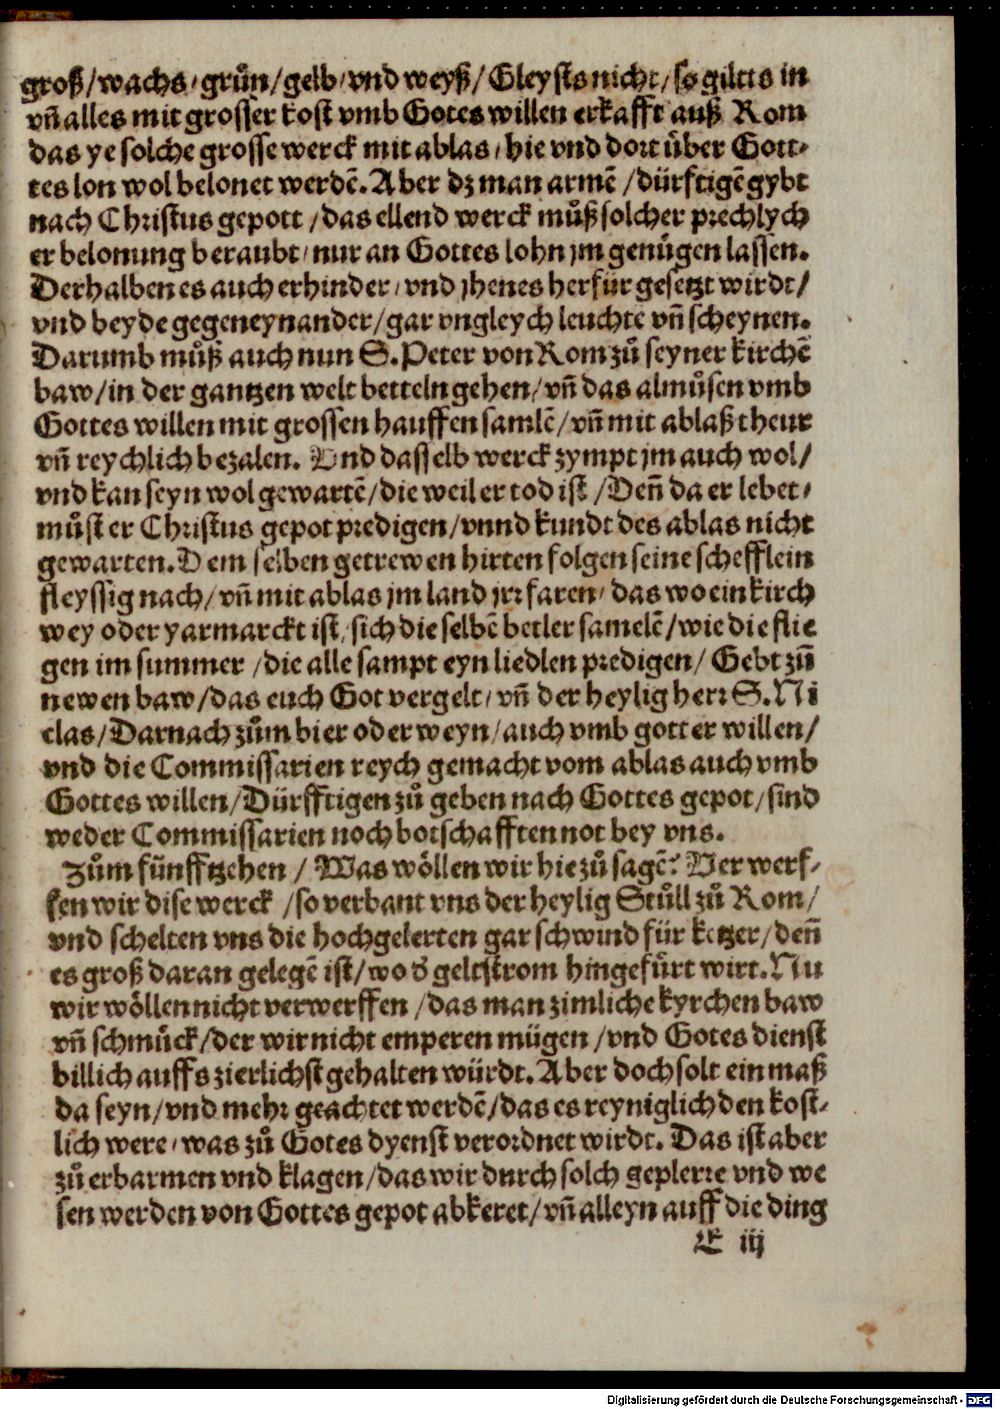 groß/wachs/grün/gelb/vnd weyß/Gleysts nicht/so giltts in
vñ alles mit grosser kost vmb Gotes willen erkafft auß Rom
das ye solche grosse werck mit ablas/hie vnd dort über Gott-
tes lon wol belonet werdẽ. Aber dz man armẽ/dürftigẽ gybt
nach Christus gepott/das ellend werck muͦß solcher prechlych
er belonung beraubt/nur an Gottes lohn jm genuͤgen lassen.
Derhalben es auch erhinder/vnd jhenes herfür gesetzt wirdt/
vnd beyde gegeneynander/gar vngleych leuchtẽ vñ scheynen.
Darumb muͦß auch nun S. Peter von Rom zuͦ seyner kirchẽ
baw/in der gantzen welt betteln gehen/vñ das almuͦsen vmb
Gottes willen mit grossen hauffen samlẽ/vñ mit ablaß theur
vñ reychlich bezalen. Vnd dasselb werck zympt jm auch wol/
vnd kan seyn wol gewartẽ/die weil er tod ist/Deñ da er lebet/
muͦst er Christus gepot predigen/vnnd kundt des ablas nicht
gewarten. Dem selben getrewen hirten folgen seine schefflein
fleyssig nach/vñ mit ablas jm land jrr faren/das wo ein kirch
wey oder yarmarckt ist/sich die selbẽ betler samelẽ/wie die flie
gen im summer/die alle sampt eyn liedlen predigen/Gebt zuͦ
newen baw/das euch Got vergelt/vñ der heylig herr S. Ni
clas/Darnach zuͦm bier oder weyn/auch vmb gotter willen/
vnd die Commissarien reych gemacht vom ablas auch vmb
Gottes willen/Dürfftigen zuͦ geben nach Gottes gepot/sind
weder Commissarien noch botschafften not bey vns.
Zuͦm fünfftzehen/Was woͤllen wir hie zuͦ sagẽ? Verwerf-
fen wir dise werck/so verbant vns der heylig Stuͦll zuͦ Rom/
vnd schelten vns die hochgelerten gar schwind für ketzer/deñ
es groß daran gelegẽ ist/wo d' geltstrom hingefuͤrt wirt. Nu
wir woͤllen nicht verwerffen/das man zimliche kyrchen baw
vñ schmuͤck/der wir nicht emperen mügen/vnd Gotes dienst
billich auffs zierlichst gehalten würdt. Aber doch solt ein maß
da seyn/vnd mehr geachtet werdẽ/das es reyniglich den kost-
lich were/was zuͦ Gotes dyenst verordnet wirdt. Das ist aber
zuͦ erbarmen vnd klagen/das wir durch solch geplerre vnd we
sen werden von Gottes gepot abkeret/vñ alleyn auff die ding
E iij
Digitalisierung gefördert durch die Deutsche Forschungsgemeinschaft - DFG